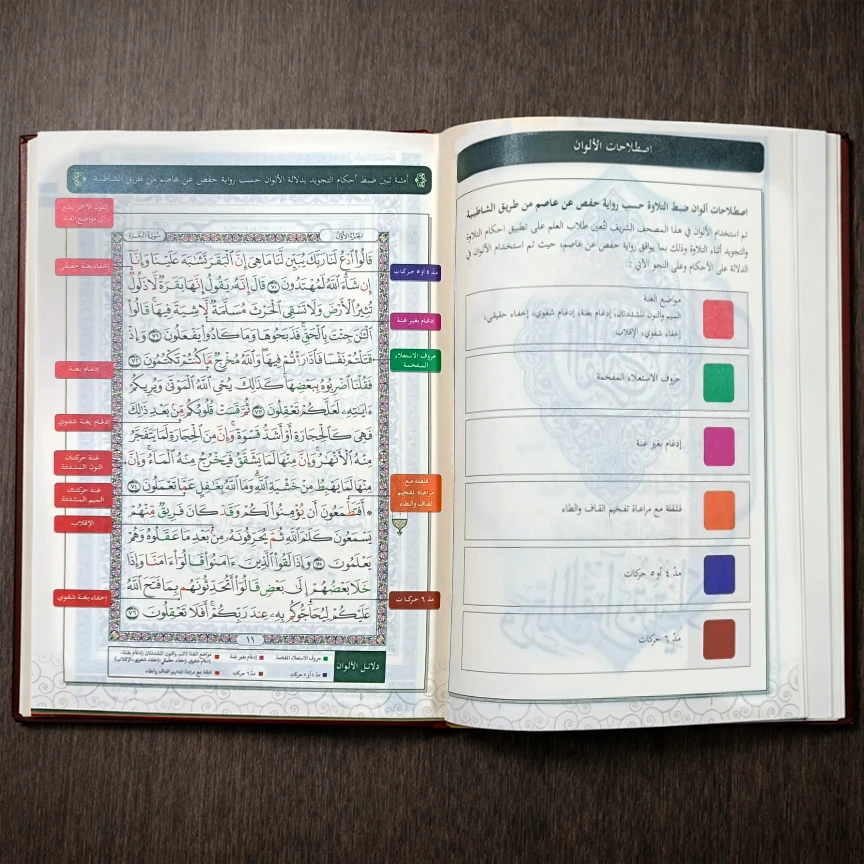 اصطلاحات الألوان
اصطلاحات ألوان ضبط التلاوة حسب رواية حفص عن عاصم من طريق الشاطبية
تم استخدام الألوان في هذا المصحف الشريف لتُعين طلاب العلم على تطبيق أحكام التلاوة
والتجويد أثناء التلاوة وذلك بما يوافق رواية حفص عن عاصم، حيث تم استخدام الألوان في
الدلالة على الأحكام وعلى النحو الآتي :
مواضع الغنة
الميم والنون المشددتان، إدغام بغنة، إدغام شفوي، إخفاء حقيقي،
إخفاء شفوي، الإقلاب
حروف الاستعلاء المفخمة
إدغام بغير غنة
قلقلة مع مراعاة تفخيم القاف والطاء
مدّ ٤ أو ٥ حركات
مدّ ٦ حركات
أمثلة تبين ضبط أحكام التجويد بدلالة الألوان حسب رواية حفص عن عاصم من طريق الشاطبية
الجزء الأول
سورة البقرة
قَالُوا ادْعُ لَنَا رَبَّكَ يُبَيِّن لَّنَا مَا هِيَ إِنَّ الْبَقَرَ تَشَابَهَ عَلَيْنَا وَإِنَّا
إِن شَاءَ اللَّهُ لَمُهْتَدُونَ ٧٠ قَالَ إِنَّهُ يَقُولُ إِنَّهَا بَقَرَةٌ لَّا ذَلُولٌ
تُثِيرُ الْأَرْضَ وَلَا تَسْقِي الْحَرْثَ مُسَلَّمَةٌ لَّا شِيَةَ فِيهَا قَالُوا
الْآنَ جِئْتَ بِالْحَقِّ فَذَبَحُوهَا وَمَا كَادُوا يَفْعَلُونَ ٧١ وَإِذْ
قَتَلْتُمْ نَفْسًا فَادَّارَأْتُمْ فِيهَا وَاللَّهُ مُخْرِجٌ مَّا كُنتُمْ تَكْتُمُونَ ٧٢
فَقُلْنَا اضْرِبُوهُ بِبَعْضِهَا كَذَٰلِكَ يُحْيِي اللَّهُ الْمَوْتَىٰ وَيُرِيكُمْ
ءَايَاتِهِ لَعَلَّكُمْ تَعْقِلُونَ ٧٣ ثُمَّ قَسَتْ قُلُوبُكُم مِّن بَعْدِ ذَٰلِكَ
فَهِيَ كَالْحِجَارَةِ أَوْ أَشَدُّ قَسْوَةً وَإِنَّ مِنَ الْحِجَارَةِ لَمَا يَتَفَجَّرُ
مِنْهُ الْأَنْهَارُ وَإِنَّ مِنْهَا لَمَا يَشَّقَّقُ فَيَخْرُجُ مِنْهُ الْمَاءُ وَإِنَّ
مِنْهَا لَمَا يَهْبِطُ مِنْ خَشْيَةِ اللَّهِ وَمَا اللَّهُ بِغَافِلٍ عَمَّا تَعْمَلُونَ ٧٤
* أَفَتَطْمَعُونَ أَن يُؤْمِنُوا لَكُمْ وَقَدْ كَانَ فَرِيقٌ مِّنْهُمْ
يَسْمَعُونَ كَلَامَ اللَّهِ ثُمَّ يُحَرِّفُونَهُ مِن بَعْدِ مَا عَقَلُوهُ وَهُمْ
يَعْلَمُونَ ٧٥ وَإِذَا لَقُوا الَّذِينَ ءَامَنُوا قَالُوا ءَامَنَّا وَإِذَا
خَلَا بَعْضُهُمْ إِلَىٰ بَعْضٍ قَالُوا أَتُحَدِّثُونَهُم بِمَا فَتَحَ اللَّهُ
عَلَيْكُمْ لِيُحَاجُّوكُم بِهِ عِندَ رَبِّكُمْ أَفَلَا تَعْقِلُونَ ٧٦
١١
مد ٤ أو ٥ حركات
إدغام بغير غنة
حروف الاستعلاء
المفخمة
قلقلة مع
مراعاة تفخيم
القاف والطاء
مد ٦ حركات
اللون الأحمر يشير
إلى مواضع الغنة
إخفاء بغنة حقيقي
إدغام بغنة
إدغام بغنة شفوي
غنة حركتان
النون المشددة
غنة حركتان
الميم المشددة
الإقلاب
إخفاء بغنة شفوي
دلائل الألوان
حروف الاستعلاء المفخمة
إدغام بغير غنة
مواضع الغنة (الميم والنون المشددتان، إدغام بغنة،
إدغام شفوي، إخفاء حقيقي، إخفاء شفوي، الإقلاب)
مدّ ٤ أو ٥ حركات
مدّ ٦ حركات
قلقلة مع مراعاة تفخيم القاف والطاء